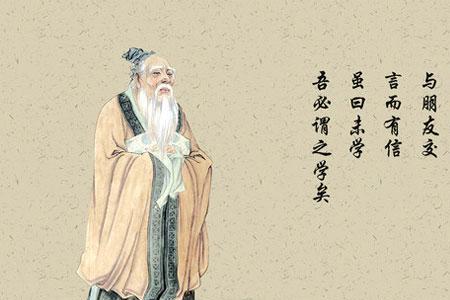 与朋友交
言而有信
虽曰未学
吾必谓之学矣